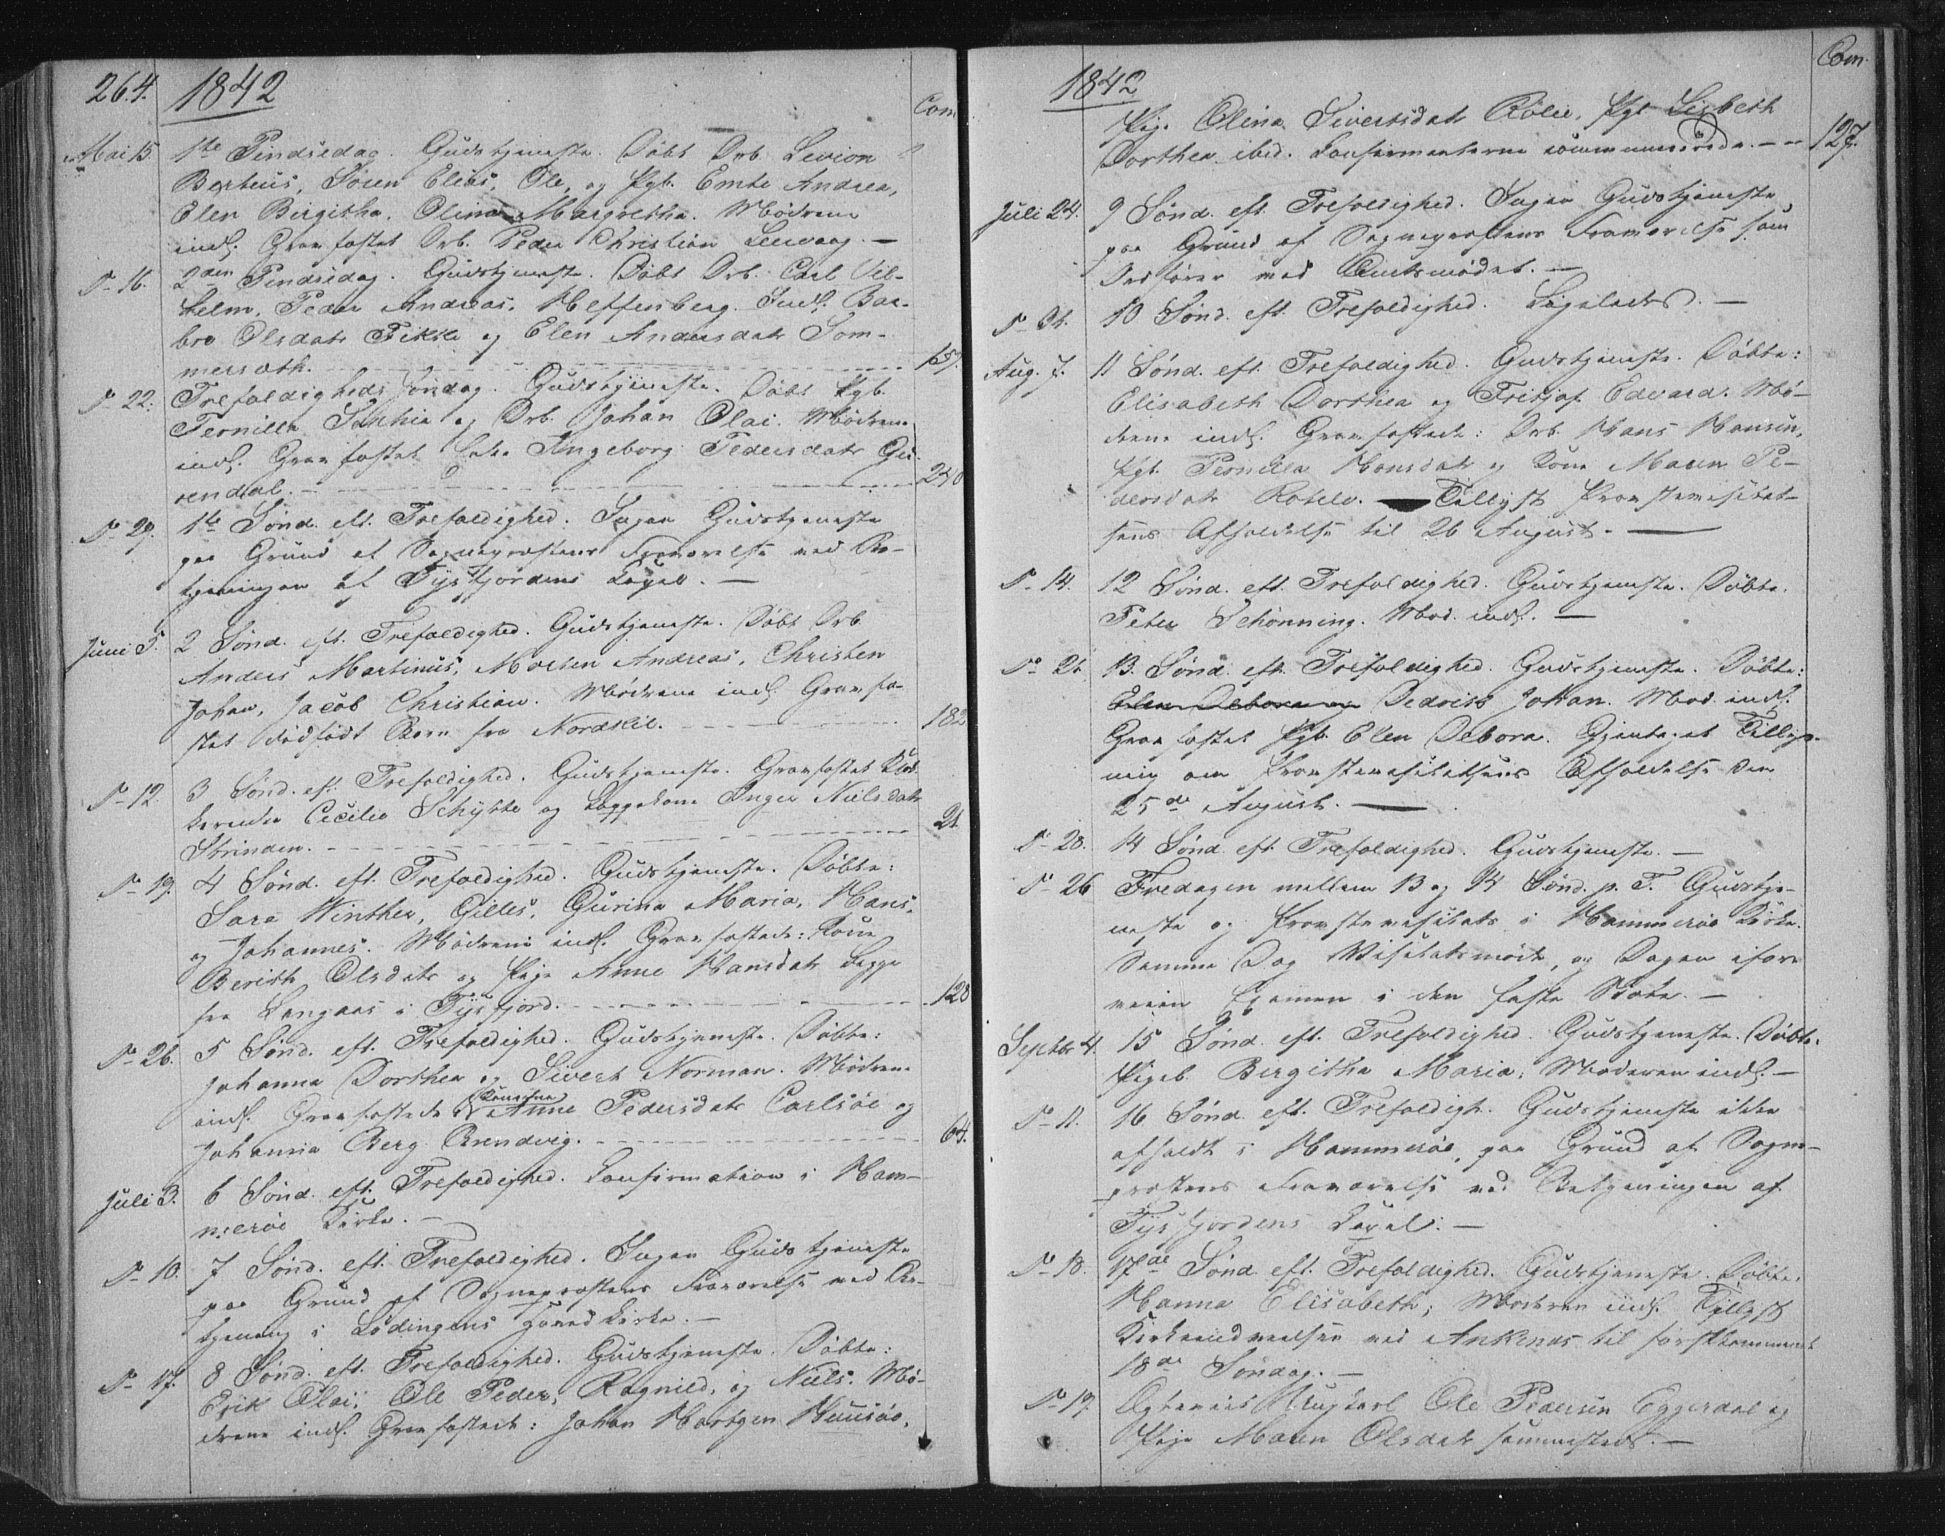 264. 1842
Com.
Mai 15. 1ste Pindsedag. Gudstjeneste. Døbt Drb. Sevion
Berteus, Søren Elias, Ole, og Pgb. Emte Andrea,
Elen Birgitha, Olina Margretha. Mødrene
indl. Graffæstet Drb. Peder Christian Leervaag. —
D 16. 2den Pindsedag. Gudstjeneste. Døbt Drb. Carl Vil-
helm, Peder Andreas, Heffenberg. Indl. Bar-
bro Olsdatr Fikke og Elen Andersdatr Som-
mersæth. 157.
D 22. Trefoldigheds Søndag. Gudstjeneste. Døbt Pgb.
Pernille Sophie og Drb. Johan Olai. Mødrene
indl. Graffæstet Ingeborg Pedersdatr
rendal. 240
D 29. 1ste Sønd. eft. Trefoldighed. Ingen Gudstjeneste
paa Grund af Sognepræstens Fraværelse ved Be-
tjeningen af Tysfjordens Capel. —
Juni 5. 2 Sønd. eft. Trefoldighed. Gudstjeneste. Døbt Drb
Anders Martinus, Morten Andreas, Christen
Johan, Jacob Christian. Mødrene indl. Graffæ-
stet dødfødt Barn fra Nordskil. 182
D 12. 3 Sønd. eft. Trefoldighed. Gudstjeneste. Graffæstet
Cecilie Schytte og Lappekone Inger Nielsdatr
Strinden. 21
D 19. 4 Sønd. eft. Trefoldighed. Gudstjeneste. Døbte:
Sara Winther, Gilles, Gurina Maria, Hans,
og Johannes. Mødrene indl. Graffæstede: Kone
Berith Olsdatr og Pige Anne Hansdatr Lapp
fra Langaas i Tysfjord. 128
D 26. 5 Sønd. eft. Trefoldighed. Gudstjeneste. Døbte:
Johanna Dorthea og Sivert Norman. Mødrene
indl. Graffæstede Konerne Anne Pedersdatr Carlsøe og
Johanna Berg Brendvig. 64.
Juli 3. 6 Sønd. eft. Trefoldighed. Confirmation i Ham-
merøe Kirke. —
D 10. 7 Sønd. eft. Trefoldighed. Ingen Gudstjeneste
paa Grund af Sognepræstens Fraværelse ved Be-
tjening i Lødingens Hovedkirke. —
D 17. 8 Sønd. eft. Trefoldighed. Gudstjeneste. Døbte:
Erik Olai, Ole Peder, Ragnild, og Niels. Mø-
drene indl. Graffæstede: Johan Hartgen Huusøe,
1842
Com.
Pige Olina Sivertsdatr Rølie, Pgb Lisbeth
Dorthea ibid. Confirmanterne communicerede. — — 127.
Juli 24. 9 Sønd. eft. Trefoldighed. Ingen Gudstjeneste
paa Grund af Sognepræstens Fraværelse som
Ordfører ved Amtsmødet. —
D 31. 10 Sønd. eft. Trefoldighed. Ligeledes. —
Aug. 7. 11 Sønd. eft. Trefoldighed. Gudstjeneste. Døbte:
Elisabeth Dorthea og Fritjof Edvard. Mø-
drene indl. Graffæstede: Drb. Hans Hansen,
Pgb. Pernille Hansdatr og Kone Maren Pe-
dersdatr Rotelv. — Tillyst Provstevisitat-
sens Afholdelse til 26 August. —
D 14. 12 Sønd. eft. Trefoldighed. Gudstjeneste. Døbte.
Peter Schønning. Mod. indl. —
D 21. 13. Sønd. eft. Trefoldighed. Gudstjeneste. Døbte:
Elen Debora og Dedrik Johan. Mod. indl.
Graffæstet Pgb. Elen Debora. Gjentaget Tillys-
ning om Provstevisitatsens Afholdelse den
25de August. —
D 28. 14 Sønd. eft. Trefoldighed. Gudstjeneste. —
D 26 Fredagen mellem 13 og 14 Sønd. p. T. Gudstje-
neste og Provstevisitats i Hammerøe Kirke.
Samme Dag Visitatsmøde, og Dagen ifor-
veien Examen i den faste Skole. —
Septbr 4. 15 Sønd. eft. Trefoldighed. Gudstjeneste. Døbte.
Pigeb. Bergitha Maria. Moderen indl. —
D 11. 16 Sønd. eft. Trefoldigh. Gudstjeneste ikke
afholdt i Hammerøe, paa Grund af Sogne-
præstens Fraværelse ved Betjeningen af
Tysfjordens Capel. —
D 18. 17de Sønd. eft. Trefoldighed. Gudstjeneste. Døbte.
Hanna Elisabeth; Moderen indl. Tillyst
Kirkeindvielsen ved Ankenæs til førstkommende
18de Søndag. —
D 19. Ægteviet Ungkarl Ole Pedersen Eggerdal og
Pige Maren Olsdatr sammesteds. —